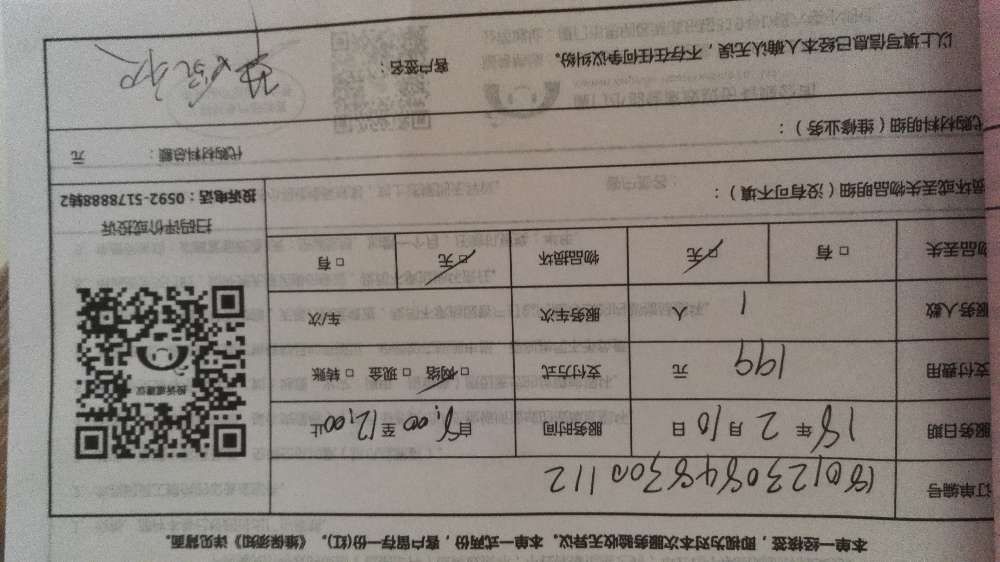 本单一经核签，即视为对本次服务验收无异议。本单一式两份，客户留存一份(红)。《维保须知》详见背面。
订单编号 180123084830011２
服务日期 18 年 2 月 10 日 服务时间 自 8:00 至 12:00 止
支付费用 199 元 支付方式 □ 网络 □ 现金 □ 转账
服务人数 1 人 服务车次 车/次
物品丢失 □ 有 □ 无 物品损坏 □ 无 □ 有
损坏或丢失物品明细（没有可不填）：
代购材料明细（维修业务）：
代购材料总额： 元
以上填写信息已经本人确认无误，不存在任何争议纠纷。 客户签名：
投诉或建议
扫码评价或投诉
投诉电话：0592-5178888转2